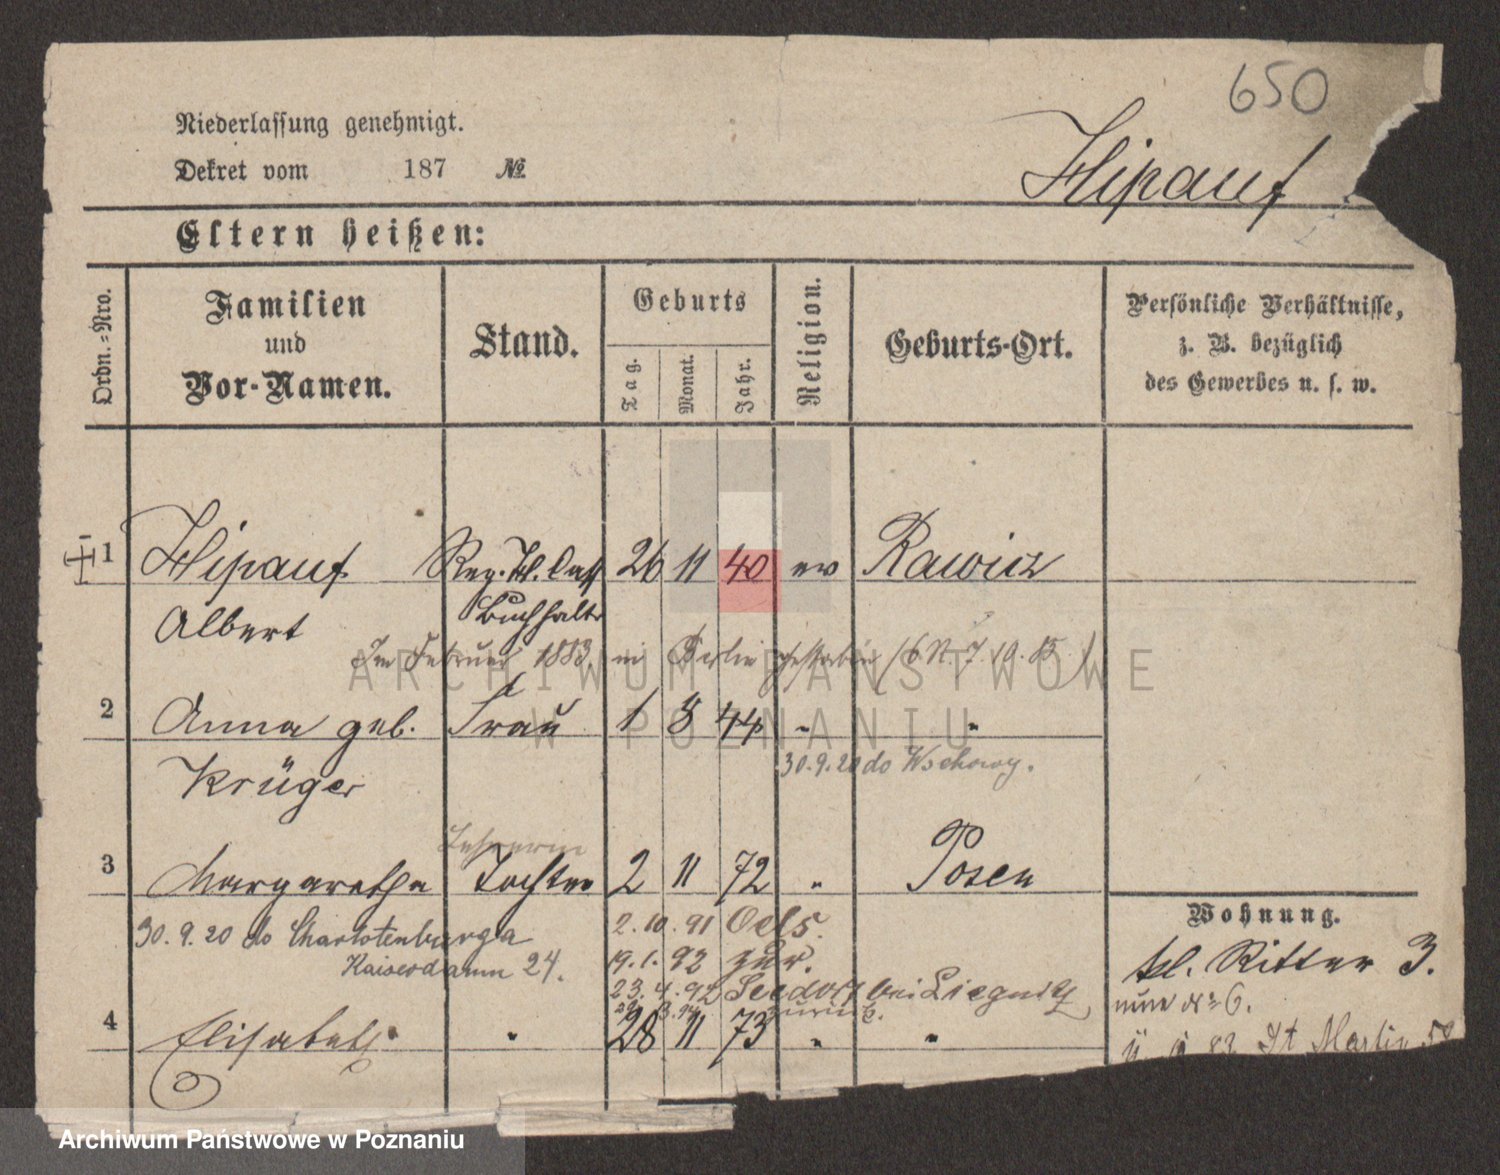 650
Niederlassung genehmigt.
Dekret vom 187 №
Hipauf
Eltern heißen:
Ordn.-Nro.
Familien und Vor-Namen.
Stand.
Geburts
Tag.
Monat.
Jahr.
Religion.
Geburts-Ort.
Persönliche Verhältnisse,
z. B. bezüglich
des Gewerbes u. s. w.
1 Hipauf Reg. 26 11 40 ev Rawicz
Albert Buchhalter
Im Februar 1883 in Berlin gestorben
ARCHIWUM PAŃSTWOWE
W POZNANIU
2 Anna geb. Frau 1 8 44 " "
Krüger
30.9.20 do Wschowy.
Lehrerin
3 Margarethe Tochter 2 11 72 " Posen
30.9.20 do Charlotenburga
Kaiserdamm 24.
2.10.91 Oels.
19.1.92 zur.
23.4.92 Seedorf bei Liegnitz
zurück.
4 Elisabeth " 28 11 73 " "
Wohnung.
kl. Ritter 3.
nun № 6.
St Martin
Archiwum Państwowe w Poznaniu